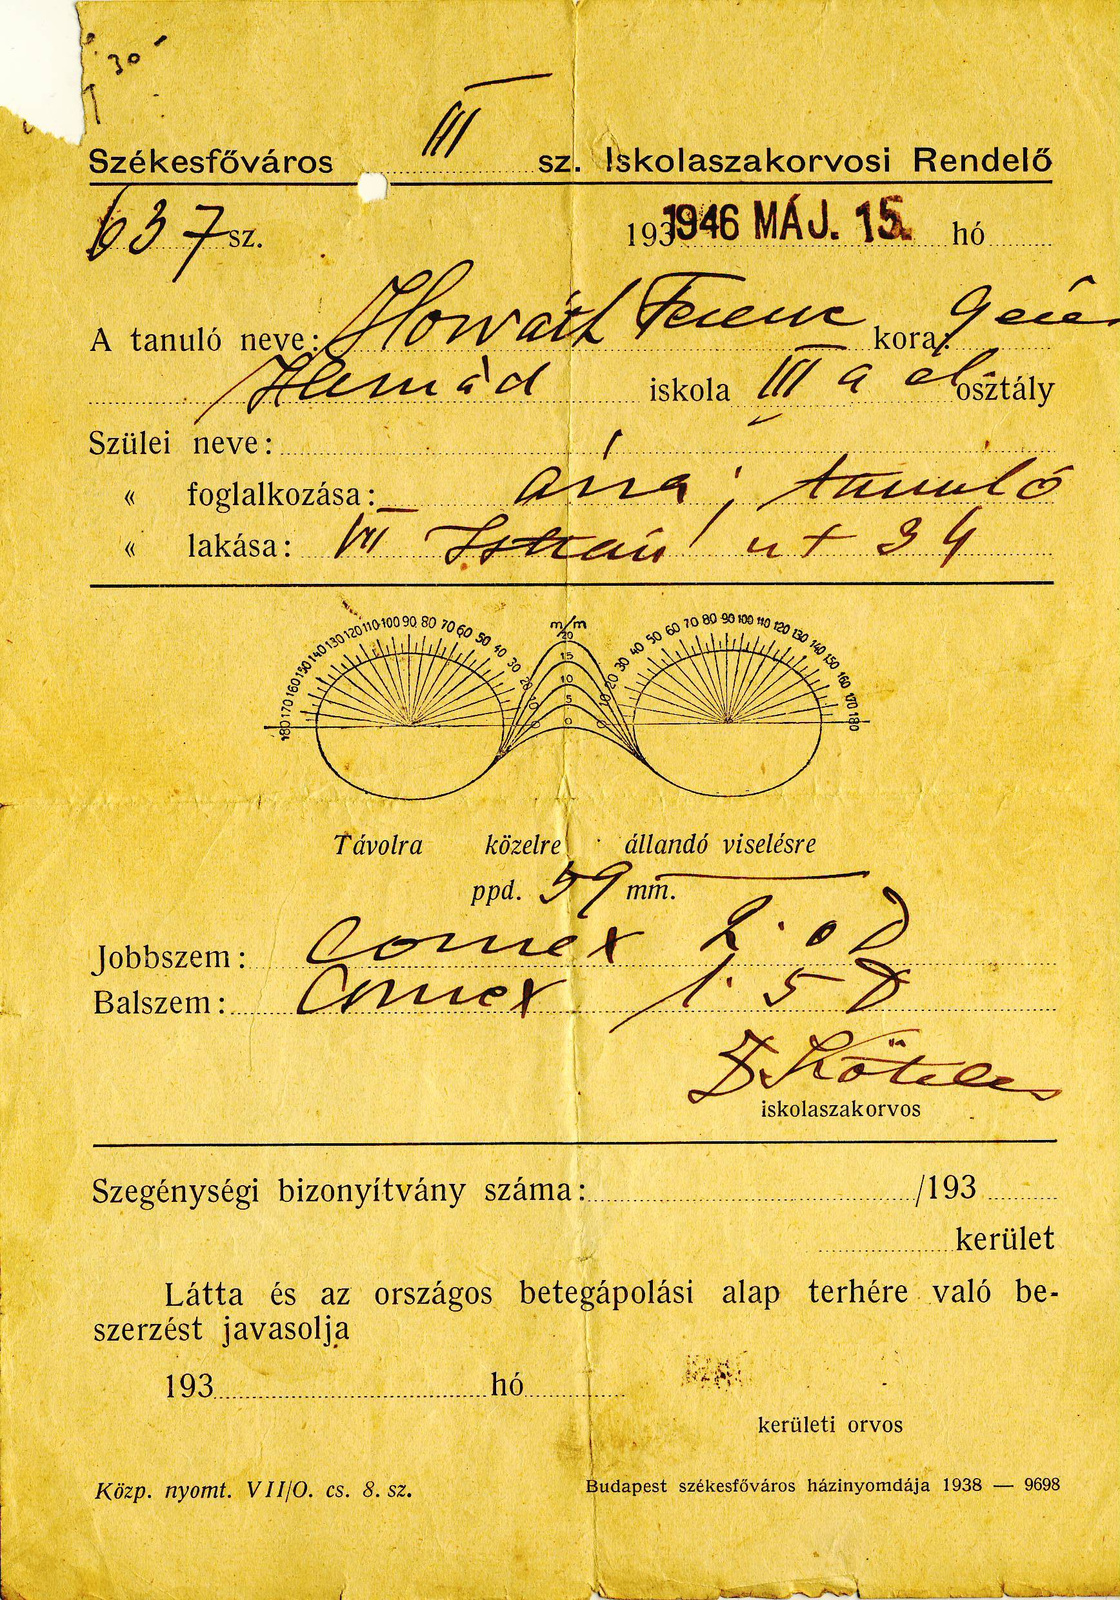 30
Székesfőváros III sz. Iskolaszakorvosi Rendelő
637 sz. 193 1946 MÁJ. 15. hó
A tanuló neve: Horváth Ferenc kora: 9 éves
Hernád iskola III a el osztály
Szülei neve:
« foglalkozása: árva, tanuló
« lakása: VII István út 34
180 170 160 150 140 130 120 110 100 90 80 70 60 50 40 30 20 10 0 m/m 20 15 10 5 0 0 10 20 30 40 50 60 70 80 90 100 110 120 130 140 150 160 170 180
Távolra közelre állandó viselésre
ppd. 59 mm.
Jobbszem: Convex 2.0 D
Balszem: Convex 1.5 D
Dr Köteles
iskolaszakorvos
Szegénységi bizonyítvány száma: /193
kerület
Látta és az országos betegápolási alap terhére való be-
szerzést javasolja
193 hó
kerületi orvos
Közp. nyomt. VII/O. cs. 8. sz. Budapest székesfőváros házinyomdája 1938 — 9698